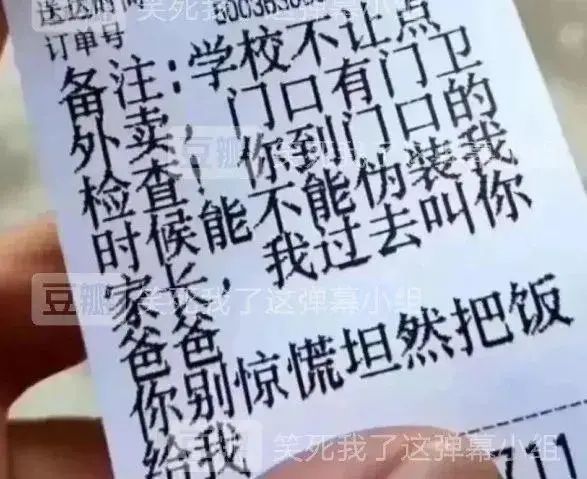 订单号
备注：学校不让点
外卖，门口有门卫
检查！你到门口的
时候能不能伪装我
家长，我过去叫你
爸爸
你别惊慌坦然把饭
给我
711
豆瓣 笑死我了这弹幕小组
豆瓣 笑死我了这弹幕小组
豆瓣 笑死我了这弹幕小组